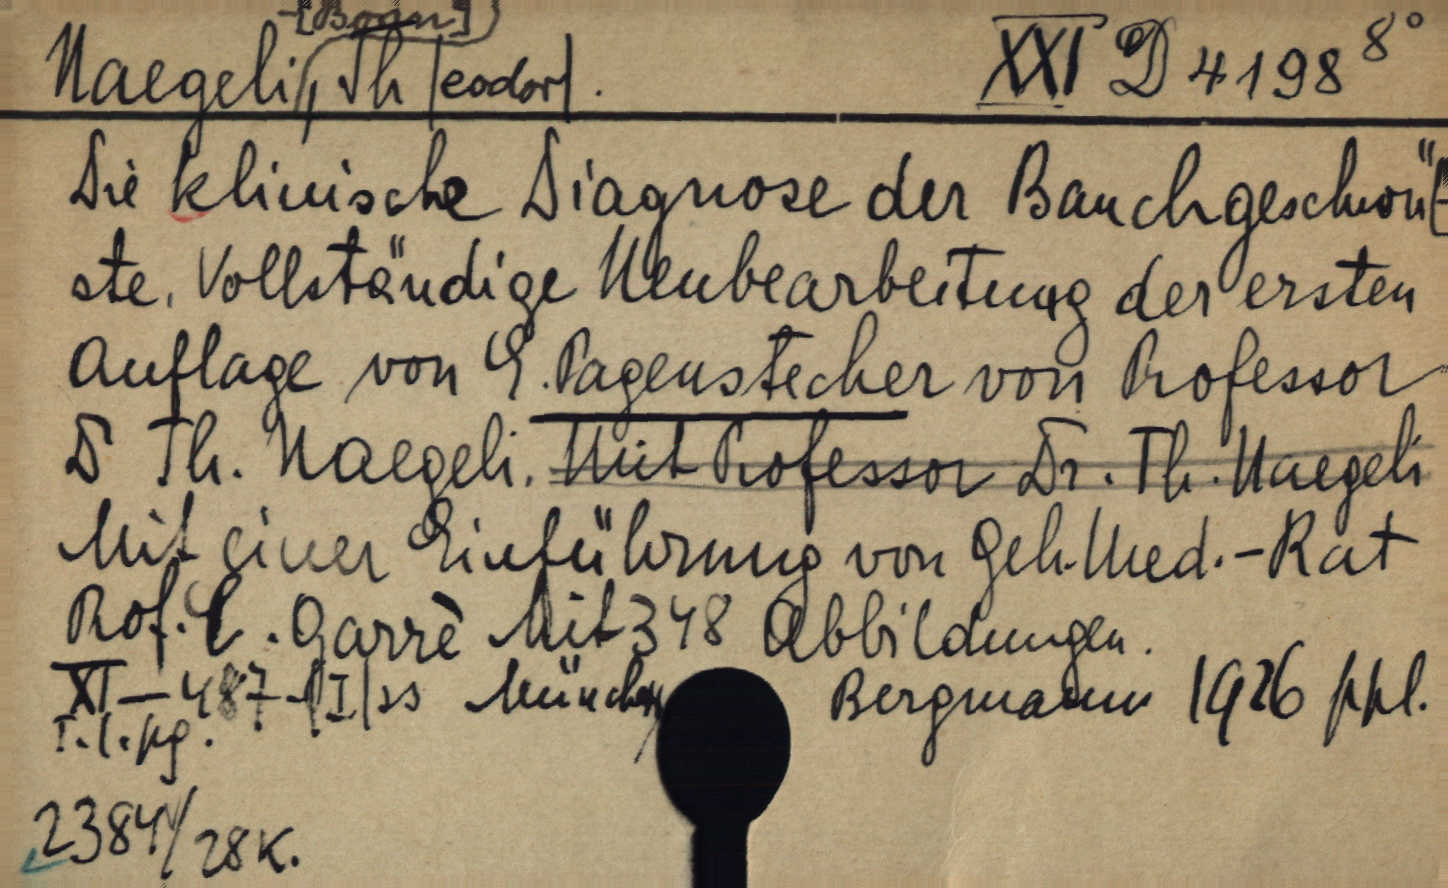 -[Bogn]
Naegeli, Th|eodor|. XXI D 4198 8°
Die klinische Diagnose der Bauchgeschwül-
ste. Vollständige Neubearbeitung der ersten
Auflage von E. Pagenstecher von Professor
D Th. Naegeli. Mit Professor Dr. Th. Naegeli
Mit einer Einführung von Geh. Med.-Rat
Prof. C. Garrè Mit 348 Abbildungen.
XI-487-|I|ss München Bergmann 1926 ppl.
T.l.pg.
2384/28K.